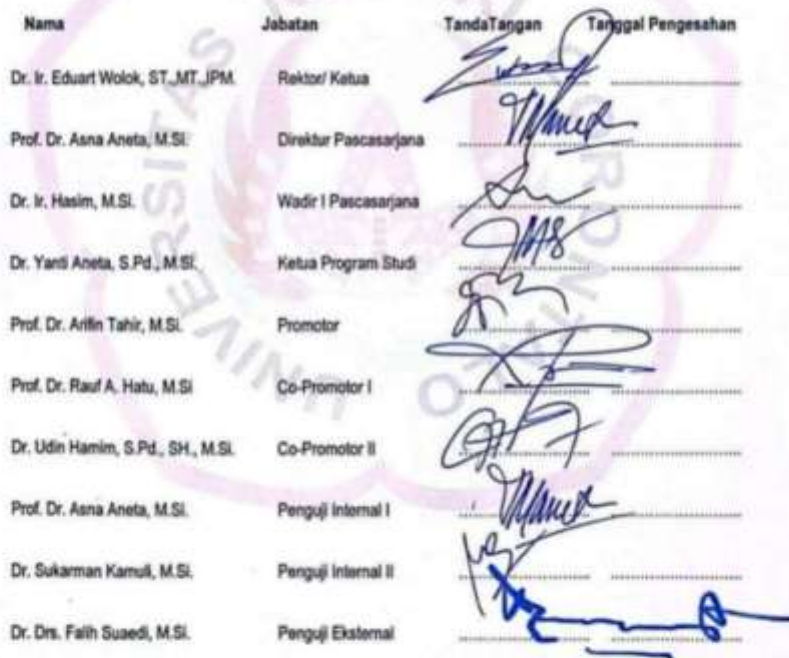 Nama Jabatan TandaTangan Tanggal Pengesahan
Dr. Ir. Eduart Wolok, ST.,MT.,IPM. Rektor/ Ketua
Prof. Dr. Asna Aneta, M.Si. Direktur Pascasarjana
Dr. Ir. Hasim, M.Si. Wadir I Pascasarjana
Dr. Yanti Aneta, S.Pd., M.Si. Ketua Program Studi
Prof. Dr. Arifin Tahir, M.Si. Promotor
Prof. Dr. Rauf A. Hatu, M.Si Co-Promotor I
Dr. Udin Hamim, S.Pd., SH., M.Si. Co-Promotor II
Prof. Dr. Asna Aneta, M.Si. Penguji Internal I
Dr. Sukarman Kamuli, M.Si. Penguji Internal II
Dr. Drs. Falih Suaedi, M.Si. Penguji Eksternal